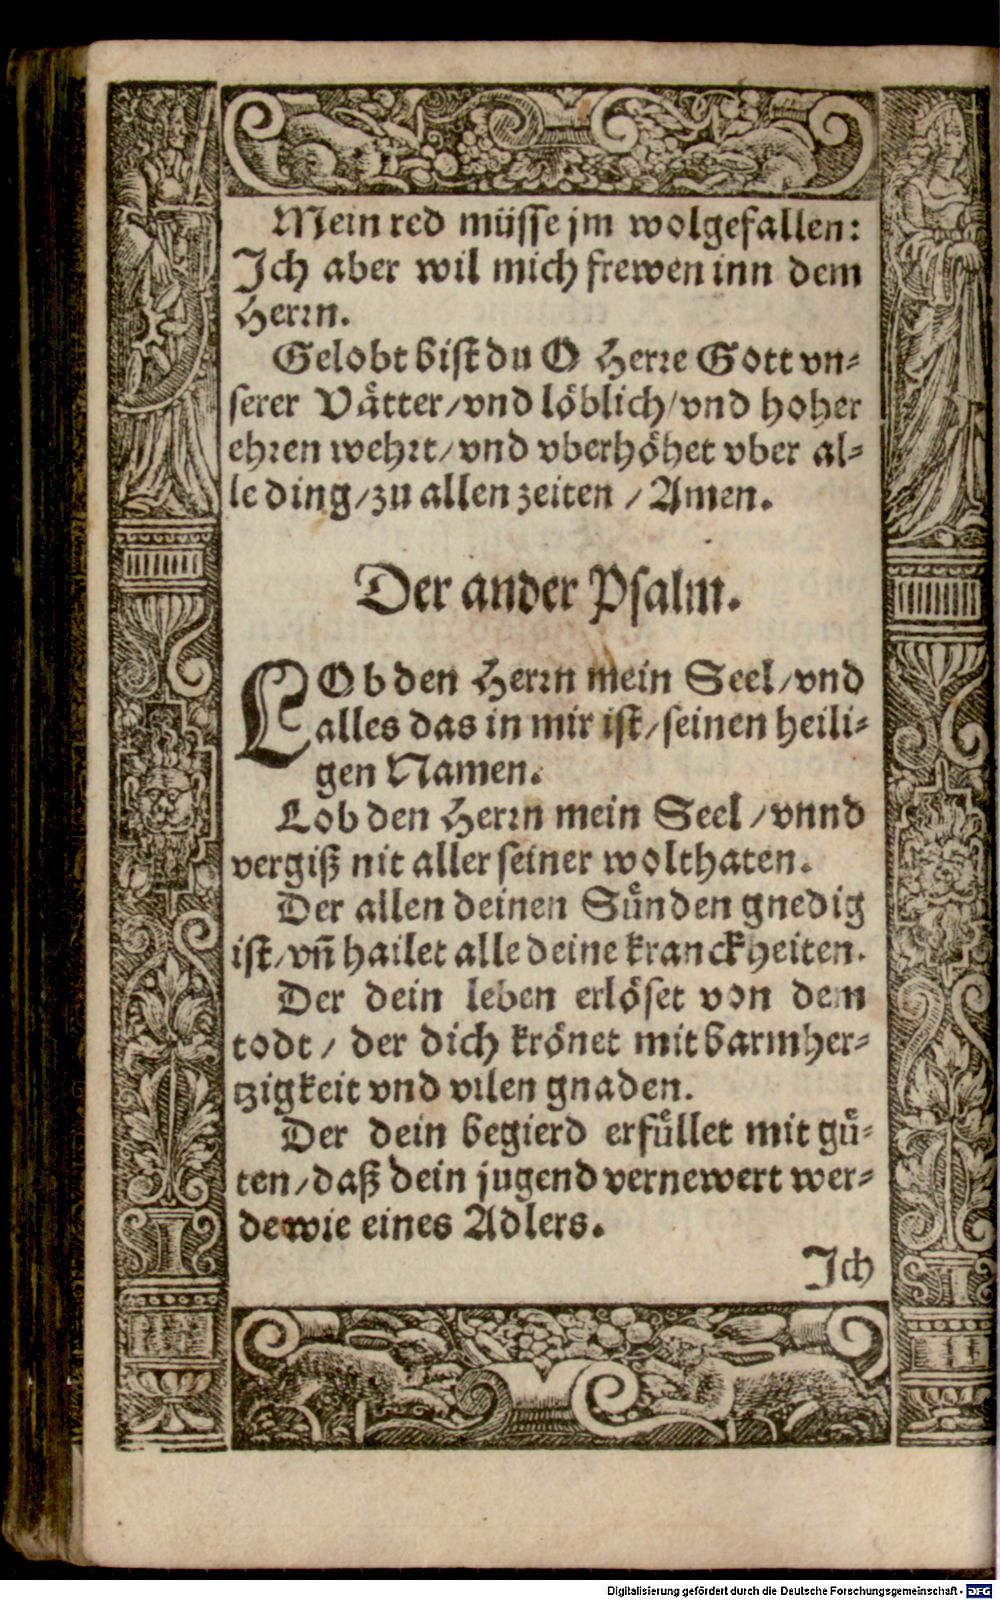 Mein red müsse jm wolgefallen:
Ich aber wil mich frewen inn dem
Herrn.
Gelobt bist du O Herre Gott vn⸗
serer Våtter/vnd löblich/vnd hoher
ehren wehrt/vnd vberhöhet vber al⸗
le ding/zu allen zeiten /Amen.
Der ander Psalm.
LOb den Herrn mein Seel/vnd
alles das in mir ist/seinen heili⸗
gen Namen.
Lob den Herrn mein Seel /vnnd
vergiß nit aller seiner wolthaten.
Der allen deinen Sünden gnedig
ist/vñ hailet alle deine kranckheiten.
Der dein leben erlöset von dem
todt/ der dich krönet mit barmher⸗
tzigkeit vnd vilen gnaden.
Der dein begierd erfüllet mit gü⸗
ten/daß dein jugend vernewert wer⸗
de wie eines Adlers.
Ich
Digitalisierung gefördert durch die Deutsche Forschungsgemeinschaft - DFG